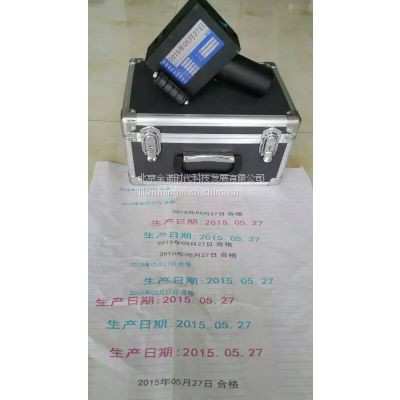 2015年05月27日
北京金谱时代科技发展有限公司
jienmingjn.cn.china.cn
2015年05月27日 合格
生产日期: 2015. 05. 27
生产日期: 2015. 05. 27
2015年05月27日 合格
2015年05月27日 合格
2015年05月27日 合格
生产日期: 2015. 05. 27
2015年05月27日 合格
生产日期: 2015. 05. 27
生产日期: 2015. 05. 27
生产日期: 2015. 05. 27
2015年05月27日 合格